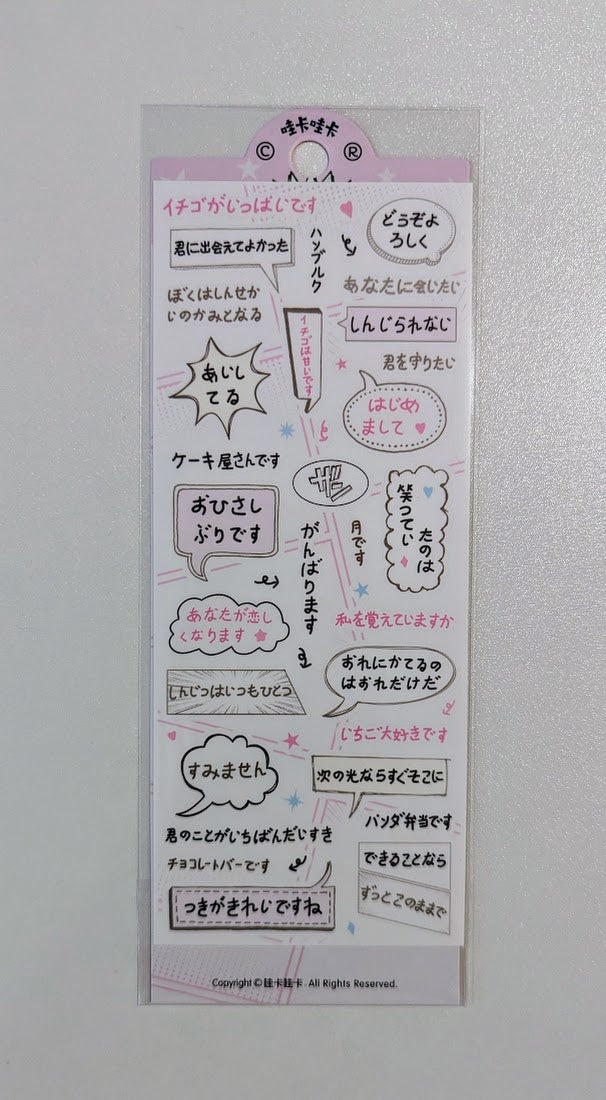 哇卡哇卡
© ®
イチゴがいっぱいです
どうぞよ
ろしく
君に出会えてよかった
ハンブルク
あなたに会いたい
ぼくはしんせか
いのかみとなる
イチゴは甘いです
しんじられない
君を守りたい
あいし
てる
はじめ
まして
ケーキ屋さんです
おひさし
ぶりです
がんばります
月です
たのは
笑ってい
あなたが恋し
くなります
私を覚えていますか
おれにかてるの
はおれだけだ
しんじつはいつもひとつ
いちご大好きです
すみません
次の光ならすぐそこに
パンダ弁当です
君のことがいちばんだいすき
チョコレートバーです
できることなら
ずっとこのままで
つきがきれいですね
Copyright © 哇卡哇卡. All Rights Reserved.